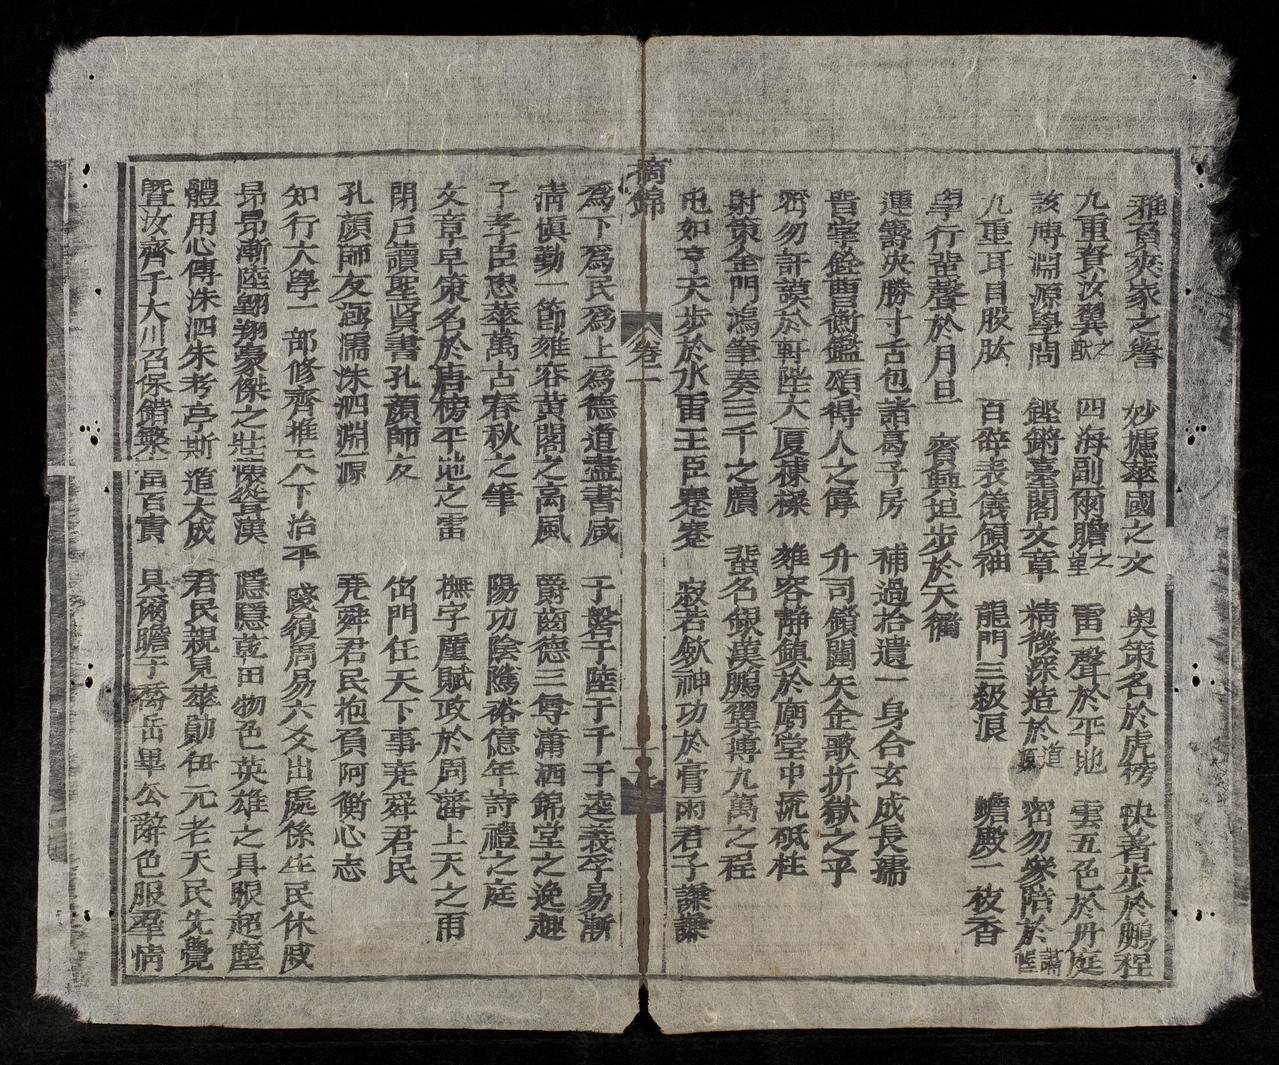 雅負爽家之譽 妙攄華國之文 奥策名於虎榜 快著步於鵬程
九重資汝翼之猷 四海副爾瞻之望 雷一聲於平地 雲五色於丹庭
該博淵源學問 鏗鏘臺閣文章 精微深造於道源 密勿參陪於講陛
九重耳目股肱 百辟表儀領袖 龍門三級浪 蟾殿一枝香
學行蜚聲於月旦 賓興坦步於天衢
運籌決勝寸舌包諸葛子房 補過拾遺一身合玄成長孺
晋掌銓曹衡鑑頌得人之傳 升司鎖闥矢企歌折獄之乎
密勿訏謨於軒陛大厦棟樑 雍容靜鎮於廟堂中流砥柱
射策金門鴻筆奏三千之牘 蜚名銀漢鵬翼摶九萬之程
屯如亨天步於水雷王臣蹇蹇 寂若歛神功於膏雨君子謙謙
摘錦 卷一
為下為民為上為德道盡書咸 于磐于陸于干于逵義孚易漸
淸愼勤一節雍容黃閣之高風 爵齒德三尊瀟洒錦堂之逸趣
子孝臣忠華萬古春秋之筆 陽功陰騭裕億年詩禮之庭
文章早策名於唐榜平地之雷 撫字屢賦政於周藩上天之雨
閉戶讀聖賢書孔顏師友 出門任天下事堯舜君民
孔顏師友涵濡洙泗淵源 堯舜君民抱負阿衡心志
知行大學一部修齊推天下治平 踐履周易六爻出處係生民休戚
昂昂漸陸翺翔豪傑之壯懷從漢 隱隱乾田物色英雄之具眼超塵
體用心傳洙泗朱考亭斯道大成 君民親見華勛伊元老天民先覺
曁汝齊于大川召保錯繁百責 具爾瞻于喬岳畢公辭色服羣情